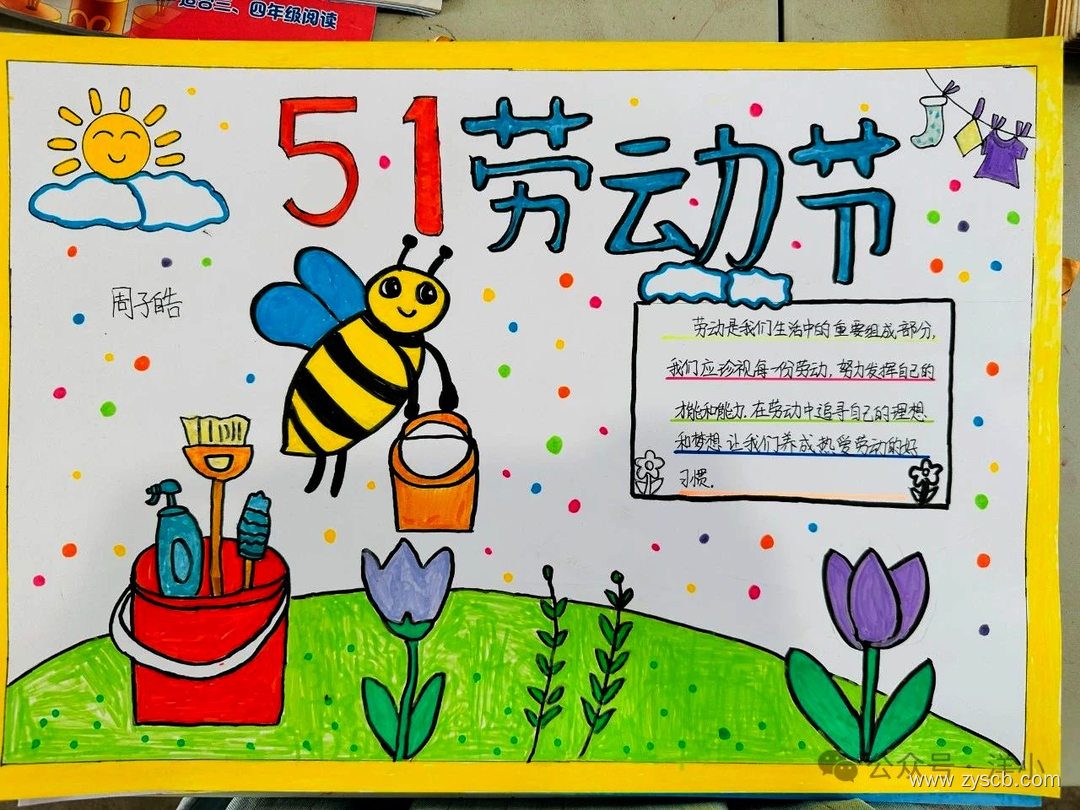 适合三、四年级阅读
51劳动节
周子皓
劳动是我们生活中的重要组成部分,
我们应珍视每一份劳动,努力发挥自己的
才能和能力.在劳动中追寻自己的理想
和梦想.让我们养成热爱劳动的好
习惯.
公众号·洋小
www.zyscb.com